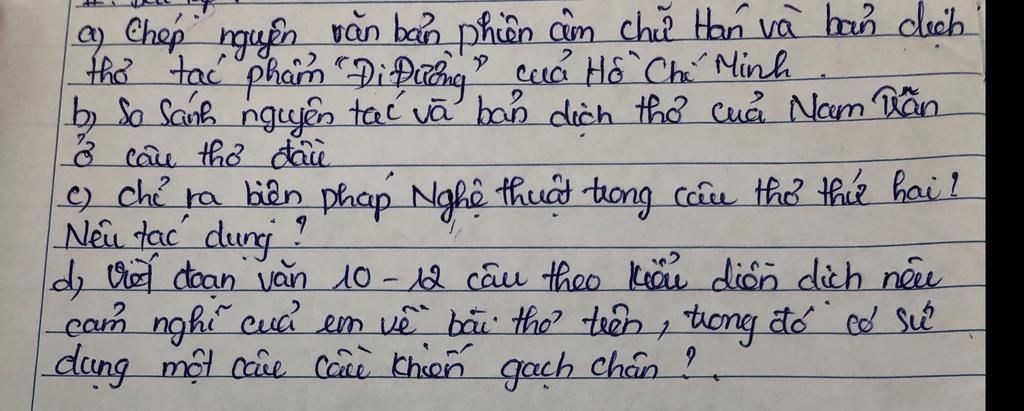 a) Chép nguyên văn bản phiên âm chữ Hán và bản dịch
thơ tác phẩm "Đi Đường" của Hồ Chí Minh.
b) So sánh nguyên tác và bản dịch thơ của Nam Trân
ở câu thơ đầu
c) chỉ ra biện pháp Nghệ thuật trong câu thơ thứ hai!
Nêu tác dụng?
d) Viết đoạn văn 10-12 câu theo kiểu diễn dịch nêu
cảm nghĩ của em về bài thơ trên, trong đó có sử
dụng một câu cầu khiến gạch chân?.